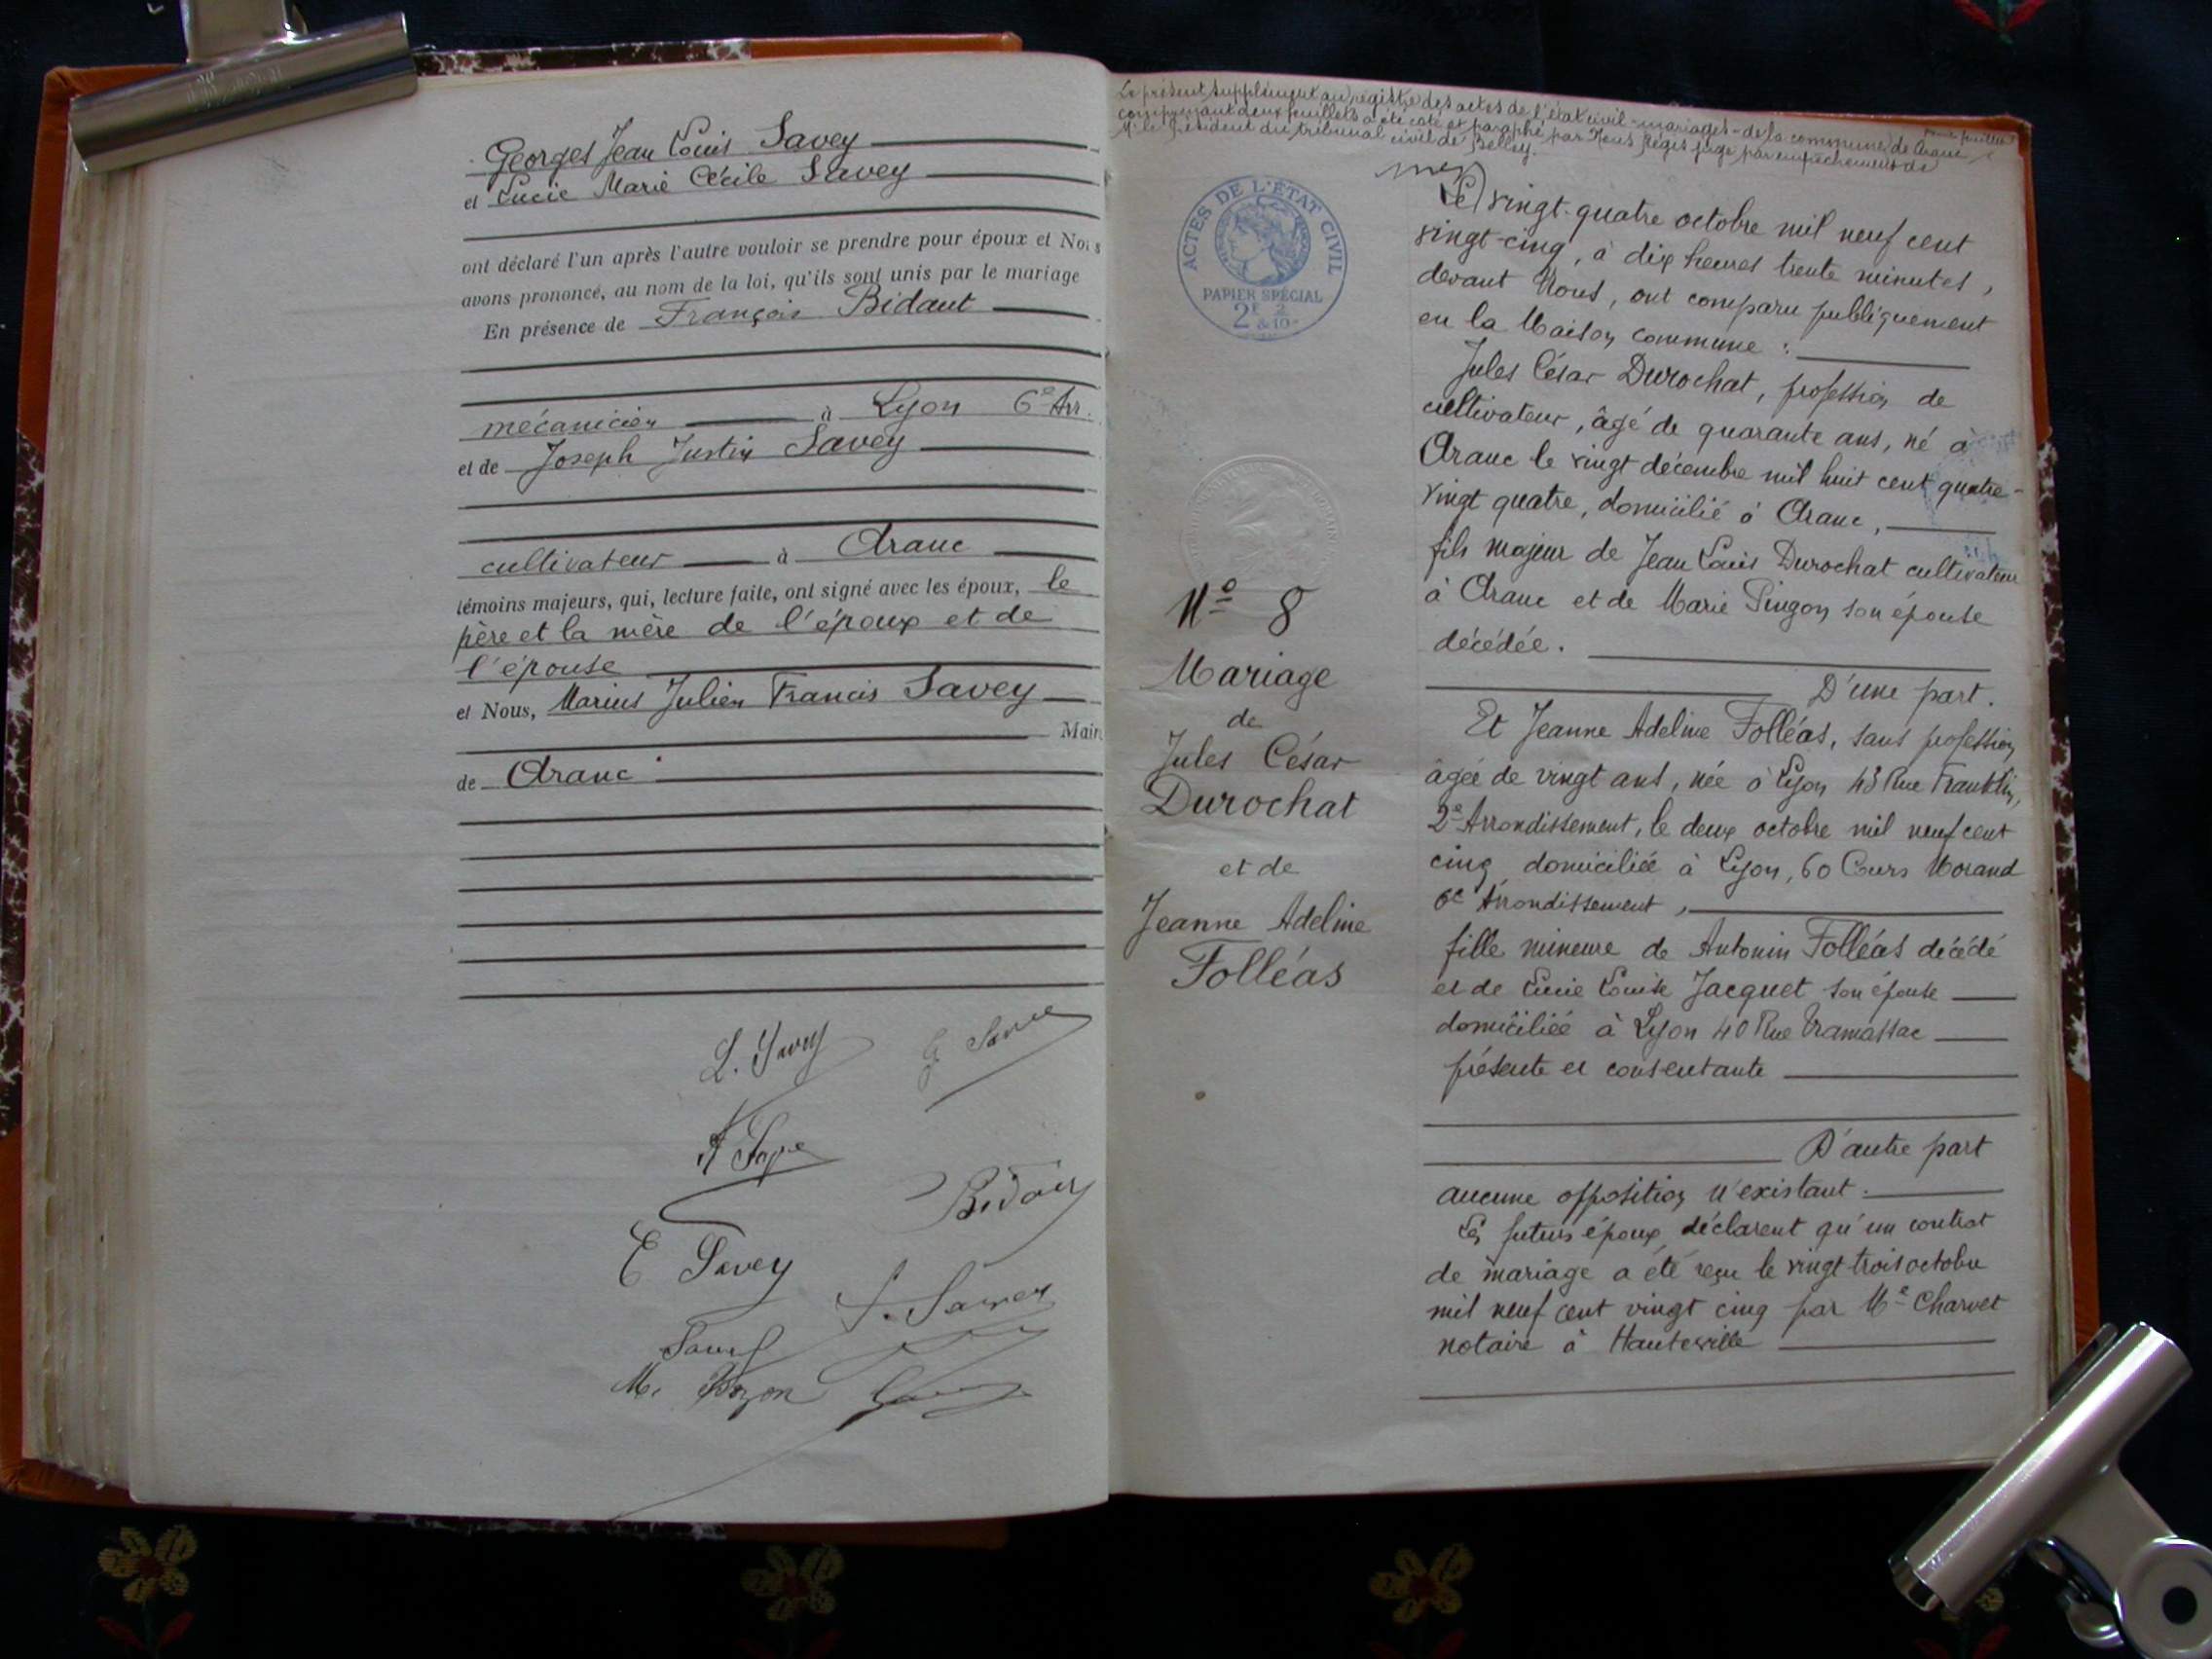 Georges Jean Louis Savey
et Lucie Marie Cécile Savey
ont déclaré l'un après l'autre vouloir se prendre pour époux et Nous
avons prononcé, au nom de la loi, qu'ils sont unis par le mariage
En présence de François Bidaut
mécanicien à Lyon 6e Arr.
et de Joseph Justin Savey
cultivateur à Aranc
témoins majeurs, qui, lecture faite, ont signé avec les époux, le
père et la mère de l'époux et de
l'épouse
et Nous, Marius Julien Francis Savey
Maire
de Aranc
L. Savey
E Savey
Le présent supplément au registre des actes de l'état civil - mariages - de la commune de Aranc
comprenant deux feuillets a été coté et paraphé par Nous juge par empêchement de
M. le Président du tribunal civil de Belley.
ACTES DE L'ÉTAT CIVIL
PAPIER SPÉCIAL
2F 2
&10es
No 8
Mariage
de
Jules César
Durochat
et de
Jeanne Adeline
Folléas
Le vingt-quatre octobre mil neuf cent
vingt-cinq, à dix heures trente minutes,
devant Nous, ont comparu publiquement
en la Maison commune :
Jules César Durochat, profession de
cultivateur, âgé de quarante ans, né à
Aranc le vingt décembre mil huit cent quatre-
vingt quatre, domicilié à Aranc,
fils majeur de Jean Louis Durochat cultivateur
à Aranc et de Marie Pingon son épouse
décédée.
D'une part.
Et Jeanne Adeline Folléas, sans profession,
âgée de vingt ans, née à Lyon 43 Rue Franklin,
2e Arrondissement, le deux octobre mil neuf cent
cinq domiciliée à Lyon, 60 Cours Morand
6e Arrondissement,
fille mineure de Antonin Folléas décédé
et de Lucie Louise Jacquet son épouse
domiciliée à Lyon 40 Rue Tramassac
présente et consentante
D'autre part
aucune opposition n'existant.
Les futurs époux déclarent qu'un contrat
de mariage a été reçu le vingt trois octobre
mil neuf cent vingt cinq par Me Charvet
notaire à Hauteville